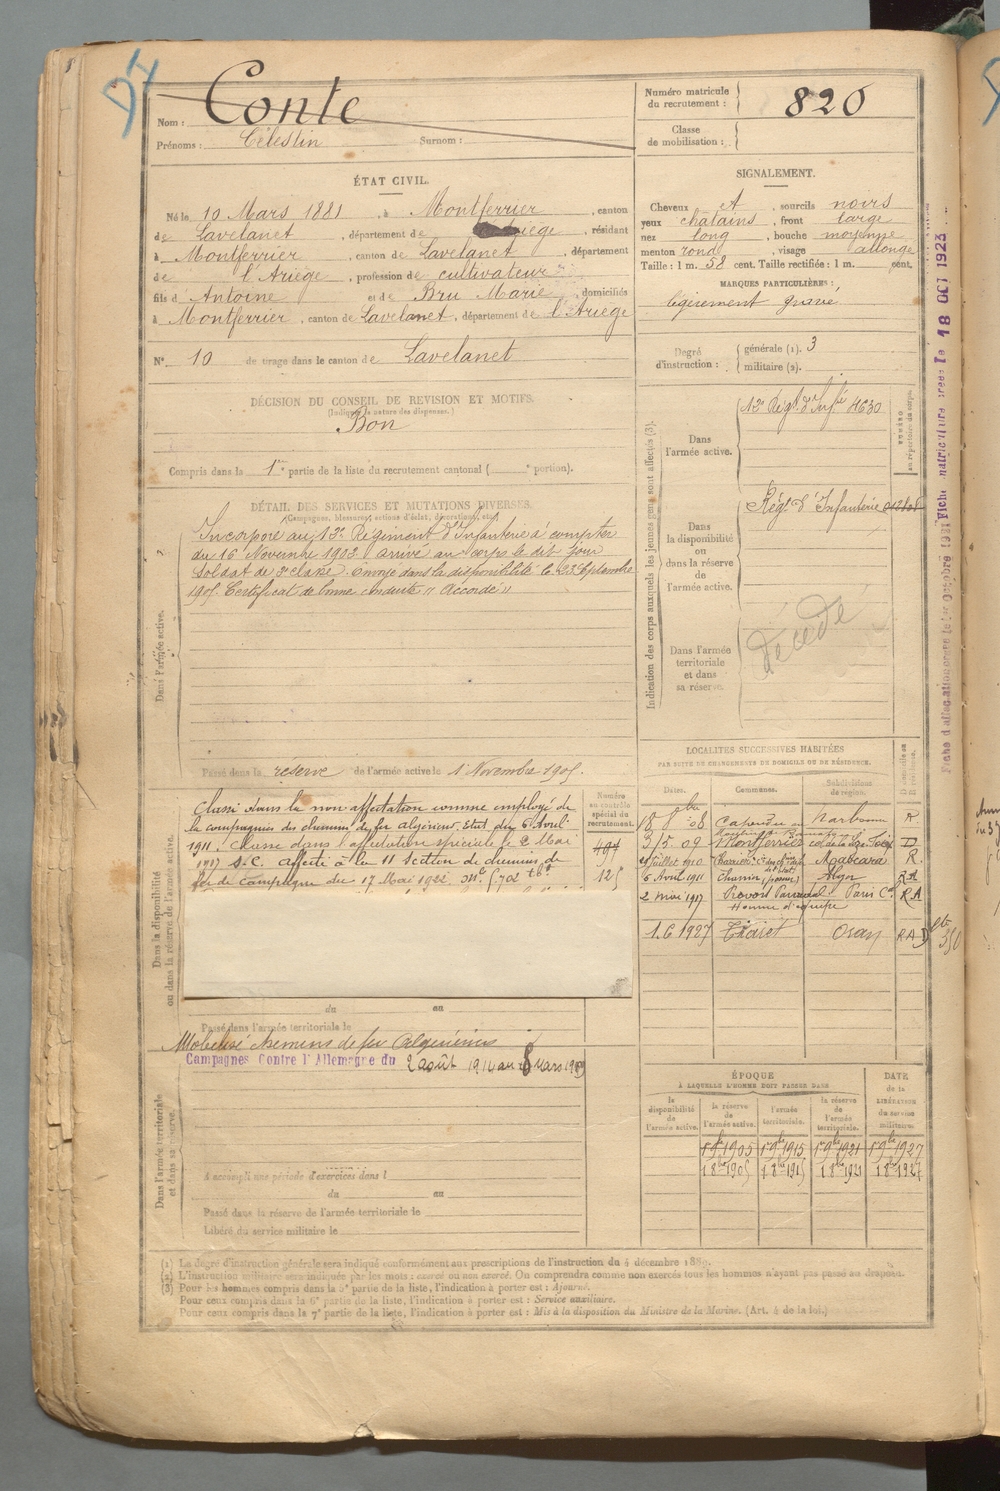 D4
Nom : Conte
Prénoms : Célestin Surnom :
Numéro matricule du recrutement : 820
Classe de mobilisation :
ÉTAT CIVIL.
Né le 10 Mars 1881, à Montferrier, canton
de Lavelanet, département de l'Ariège, résidant
à Montferrier, canton de Lavelanet, département
de l'Ariège, profession de cultivateur
fils d Antoine et de Bru Marie, domiciliés
à Montferrier, canton de Lavelanet, département de l'Ariège
N° 10 de tirage dans le canton de Lavelanet
SIGNALEMENT.
Cheveux et, sourcils noirs
yeux chatains, front large
nez long, bouche moyenne
menton rond, visage allongé
Taille : 1 m. 58 cent. Taille rectifiée : 1 m. cent.
MARQUES PARTICULIÈRES :
légèrement gravé
Degré d'instruction : générale (1). 3
militaire (2).
DÉCISION DU CONSEIL DE REVISION ET MOTIFS.
(Indiquer la nature des dispenses.)
Bon
Compris dans la 1re partie de la liste du recrutement cantonal ( e portion).
DÉTAIL DES SERVICES ET MUTATIONS DIVERSES.
(Campagnes, blessures, actions d'éclat, décorations, etc.)
Dans l'armée active.
Incorporé au 12e Régiment d'Infanterie à compter
du 16 Novembre 1902 arrivé au corps le dit jour
soldat de 2e classe. Envoyé dans la disponibilité le 23 Septembre
1905. Certificat de bonne conduite "Accordé"
Passé dans la réserve de l'armée active le 1 Novembre 1905.
Indication des corps auxquels les jeunes gens sont affectés (3).
Dans l'armée active.
12e Régt d'Infie 4630
NUMÉRO au répertoire du corps.
Dans la disponibilité ou dans la réserve de l'armée active.
Régt d'Infanterie
Dans l'armée territoriale et dans sa réserve.
décédé
Dans la disponibilité ou dans la réserve de l'armée active.
Classé dans la non affectation comme employé de
la compagnie des chemins de fer algériens. Etat du 6 Avril
1911. Classé dans l'affectation spéciale le 2 Mai
1917 S.C. affecté à la 11 Section de chemins de
fer de campagne du 17 Mai 1922.
Numéro au contrôle spécial du recrutement.
491
125
du au
Passé dans l'armée territoriale le
Mobilisé chemins de fer Algériens
Campagnes Contre l'Allemagne du 2 août 1914 au
Dans l'armée territoriale et dans sa réserve.
A accompli une période d'exercices dans l
du au
Passé dans la réserve de l'armée territoriale le
Libéré du service militaire le
LOCALITÉS SUCCESSIVES HABITÉES
PAR SUITE DE CHANGEMENTS DE DOMICILE OU DE RÉSIDENCE.
Dates. Communes. Subdivisions de région. D. domicile ou R. résidence.
18 8bre 08 Narbonne R
3/5.09 Montferrier D
Juillet 1910 Mascara R.
6 Avril 1911 Alger RA
2 mai 1917 Paris RA
Homme d'équipe
1.6 1927 Tiaret Oran RAD
ÉPOQUE
A LAQUELLE L'HOMME DOIT PASSER DANS
DATE de la LIBÉRATION du service militaire.
la disponibilité de l'armée active. la réserve de l'armée active. l'armée territoriale. la réserve de l'armée territoriale.
1 9bre 1905 1 9bre 1915 1 9bre 1921 1 9bre 1927
1 8bre 1905 1 8bre 1915 1 8bre 1921 1 8bre 1927
(1) Le degré d'instruction générale sera indiqué conformément aux prescriptions de l'instruction du 4 décembre 1889.
(2) L'instruction militaire sera indiquée par les mots : exercé ou non exercé. On comprendra comme non exercés tous les hommes n'ayant pas passé au drapeau.
(3) Pour les hommes compris dans la 5e partie de la liste, l'indication à porter est : Ajourné.
Pour ceux compris dans la 6e partie de la liste, l'indication à porter est : Service auxiliaire.
Pour ceux compris dans la 7e partie de la liste, l'indication à porter est : Mis à la disposition du Ministre de la Marine. (Art. 4 de la loi.)
18 OCT 1923